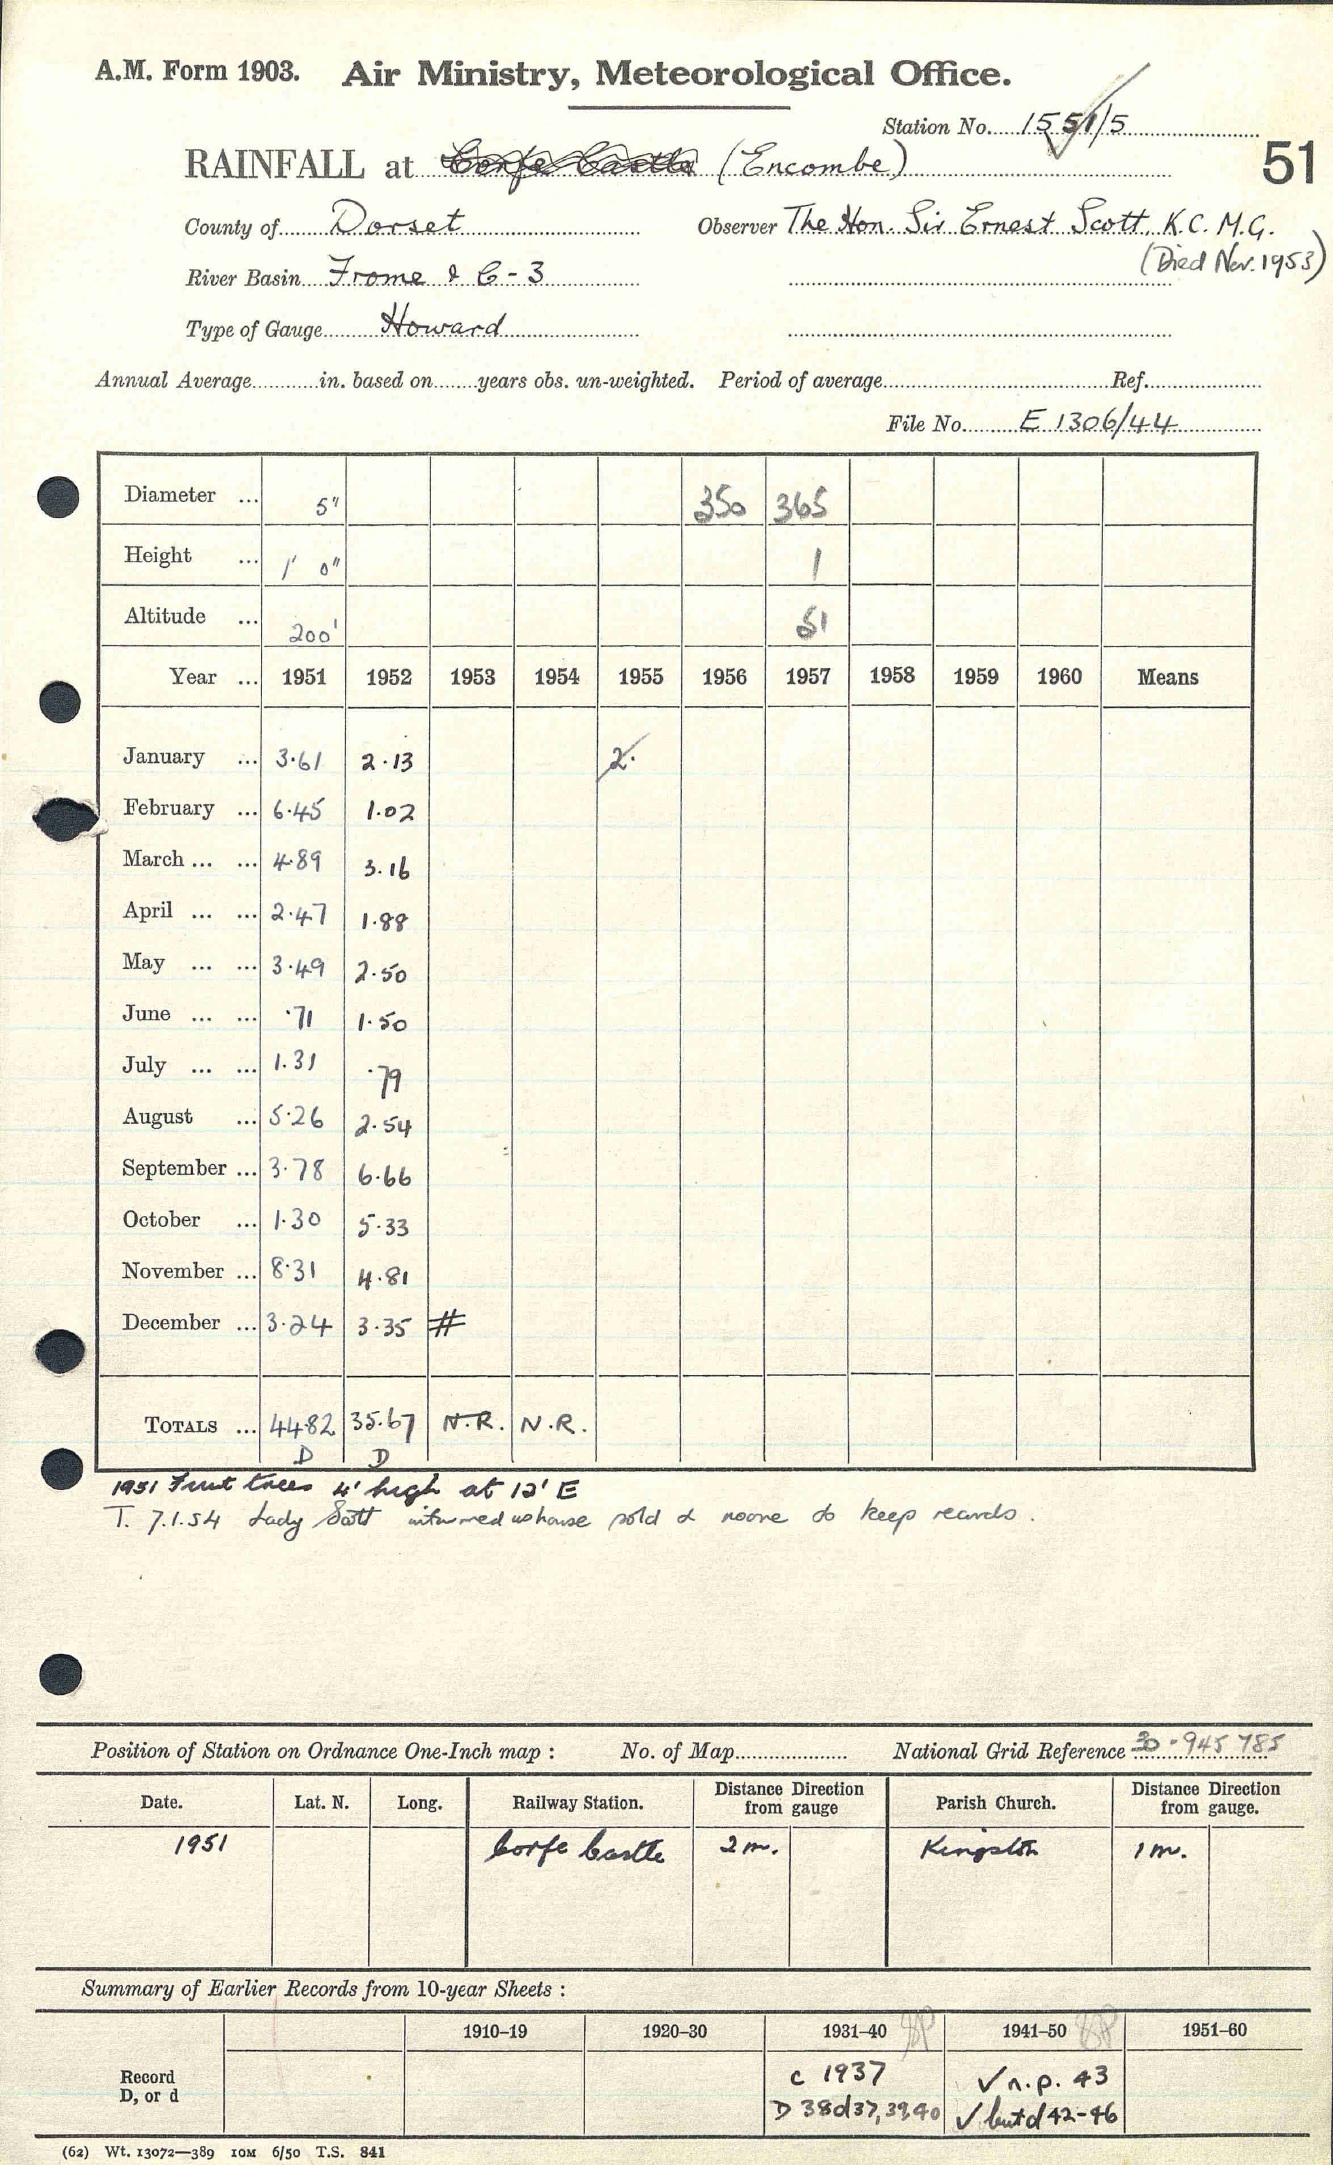 A.M. Form 1903. Air Ministry, Meteorological Office.
Station No. 1551/5
RAINFALL at Corfe Castle (Encombe)
51
County of Dorset Observer The Hon. Sir Ernest Scott, K.C.M.G.
(Died Nov. 1953)
River Basin Frome & C-3
Type of Gauge Howard
Annual Average in. based on years obs. un-weighted. Period of average Ref.
File No. E 1306/44
Diameter ... 5" 350 365
Height ... 1' 0" 1
Altitude ... 200' 51
Year ... 1951 1952 1953 1954 1955 1956 1957 1958 1959 1960 Means
January ... 3.61 2.13 2.
February ... 6.45 1.02
March ... ... 4.89 3.16
April ... ... 2.47 1.88
May ... ... 3.49 2.50
June ... ... .71 1.50
July ... ... 1.31 .79
August ... 5.26 2.54
September ... 3.78 6.66
October ... 1.30 5.33
November ... 8.31 4.81
December ... 3.24 3.35 #
TOTALS ... 44.82 35.67 N.R. N.R.
D D
1951 Fruit trees 4' high at 12' E
T. 7.1.54 Lady Scott informed us house sold & noone to keep records.
Position of Station on Ordnance One-Inch map : No. of Map National Grid Reference 30-945 785
Date. Lat. N. Long. Railway Station. Distance from gauge Direction Parish Church. Distance from gauge. Direction
1951 Corfe Castle 2 m. Kingston 1 m.
Summary of Earlier Records from 10-year Sheets :
1910–19 1920–30 1931–40 1941–50 1951–60
Record c 1937 ✓ n.p. 43
D, or d D 38 d 37, 39, 40 ✓ but d 42-46
(62) Wt. 13072—389 10M 6/50 T.S. 841